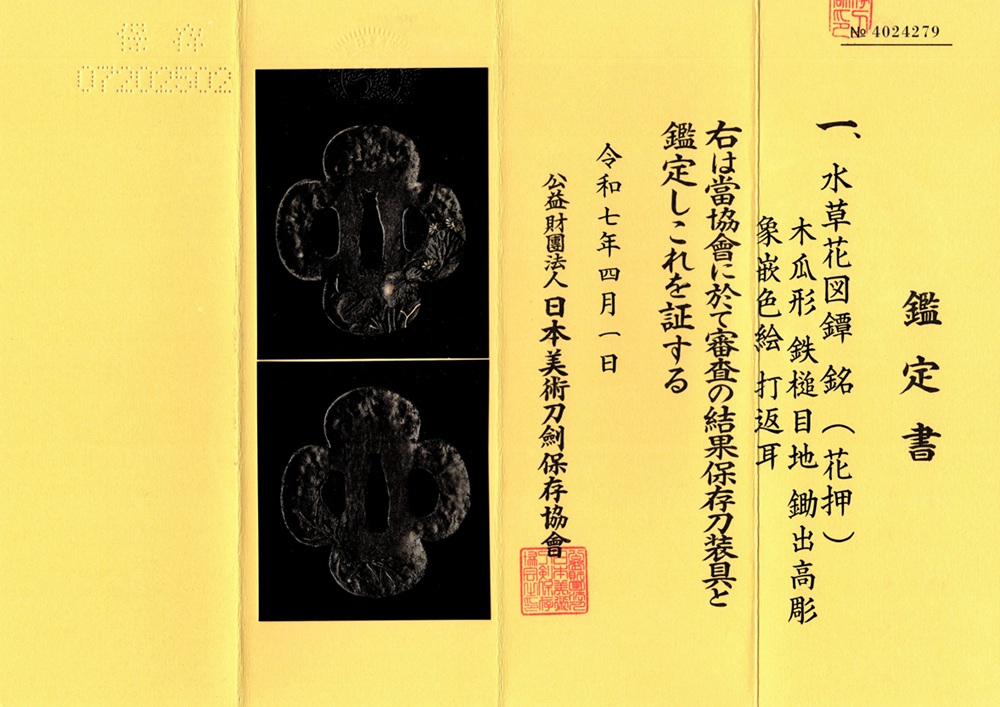 № 4024279
鑑定書
一、水草花図鐔 銘(花押)
木瓜形 鉄槌目地 鋤出高彫
象嵌色絵 打返耳
右は當協會に於て審査の結果保存刀装具と
鑑定しこれを証する
令和七年四月一日
公益財團法人 日本美術刀劍保存協會
保存
07202502